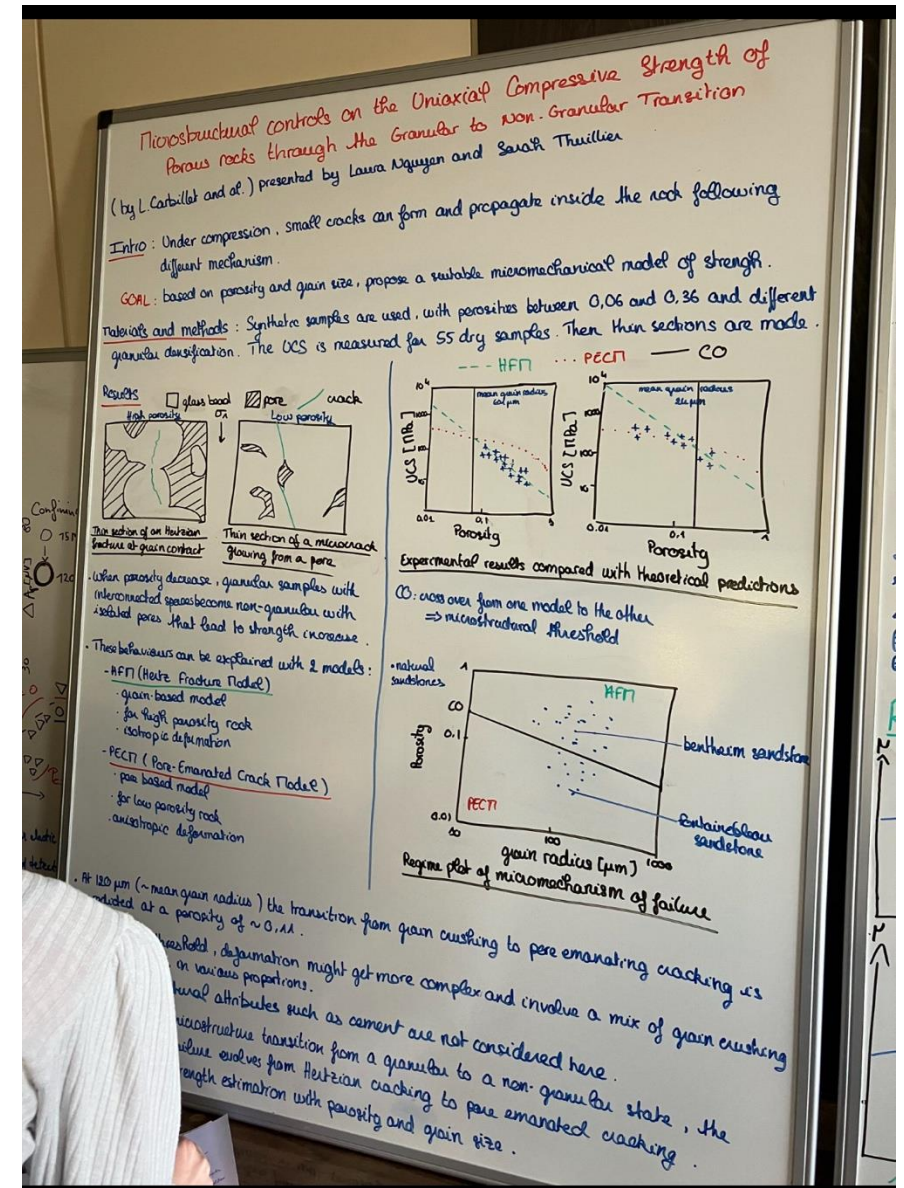 Microstructural controls on the Uniaxial Compressive Strength of
Porous rocks through the Granular to Non-Granular Transition
(by L.Carbillet and al.) presented by Laura Nguyen and Sarah Thuillier
Intro : Under compression, small cracks can form and propagate inside the rock following
different mechanism.
GOAL : based on porosity and grain size, propose a suitable micromechanical model of strength.
Materials and methods : Synthetic samples are used, with porosities between 0,06 and 0,36 and different
granular densification. The UCS is measured for 55 dry samples. Then thin sections are made.
Results
glass bead
pore
crack
High porosity
Low porosity
Thin section of an Hertzian
fracture at grain contact
Thin section of a microcrack
growing from a pore
. When porosity decrease, granular samples with
interconnected spaces become non-granular with
isolated pores that lead to strength increase.
. These behaviours can be explained with 2 models :
- HFM (Hertz Fracture Model)
. grain-based model
. for high porosity rock
. isotropic deformation
- PECM (Pore-Emanated Crack Model)
. pore based model
. for low porosity rock
. anisotropic deformation
--- HFM ... PECM — CO
10⁴
mean grain radius
1000
UCS [MPa]
0.01
0.1
Porosity
10⁴
mean grain radius
1000
UCS [MPa]
100
10
0.01
0.1
1
Porosity
Experimental results compared with theoretical predictions
CO : cross over from one model to the other
⇒ microstructural threshold
. natural
sandstones
1
HFM
CO
0.1
Porosity
bentheim sandstone
PECM
fontainebleau
sandstone
0.01
100
1000
grain radius [μm]
Regime plot of micromechanism of failure
. At 120 μm (~mean grain radius) the transition from grain crushing to pore emanating cracking is
at a porosity of ~0,11.
threshold, deformation might get more complex and involve a mix of grain crushing
in various proportions.
attributes such as cement are not considered here.
microstructure transition from a granular to a non-granular state, the
failure evolves from Hertzian cracking to pore emanated cracking.
strength estimation with porosity and grain size.